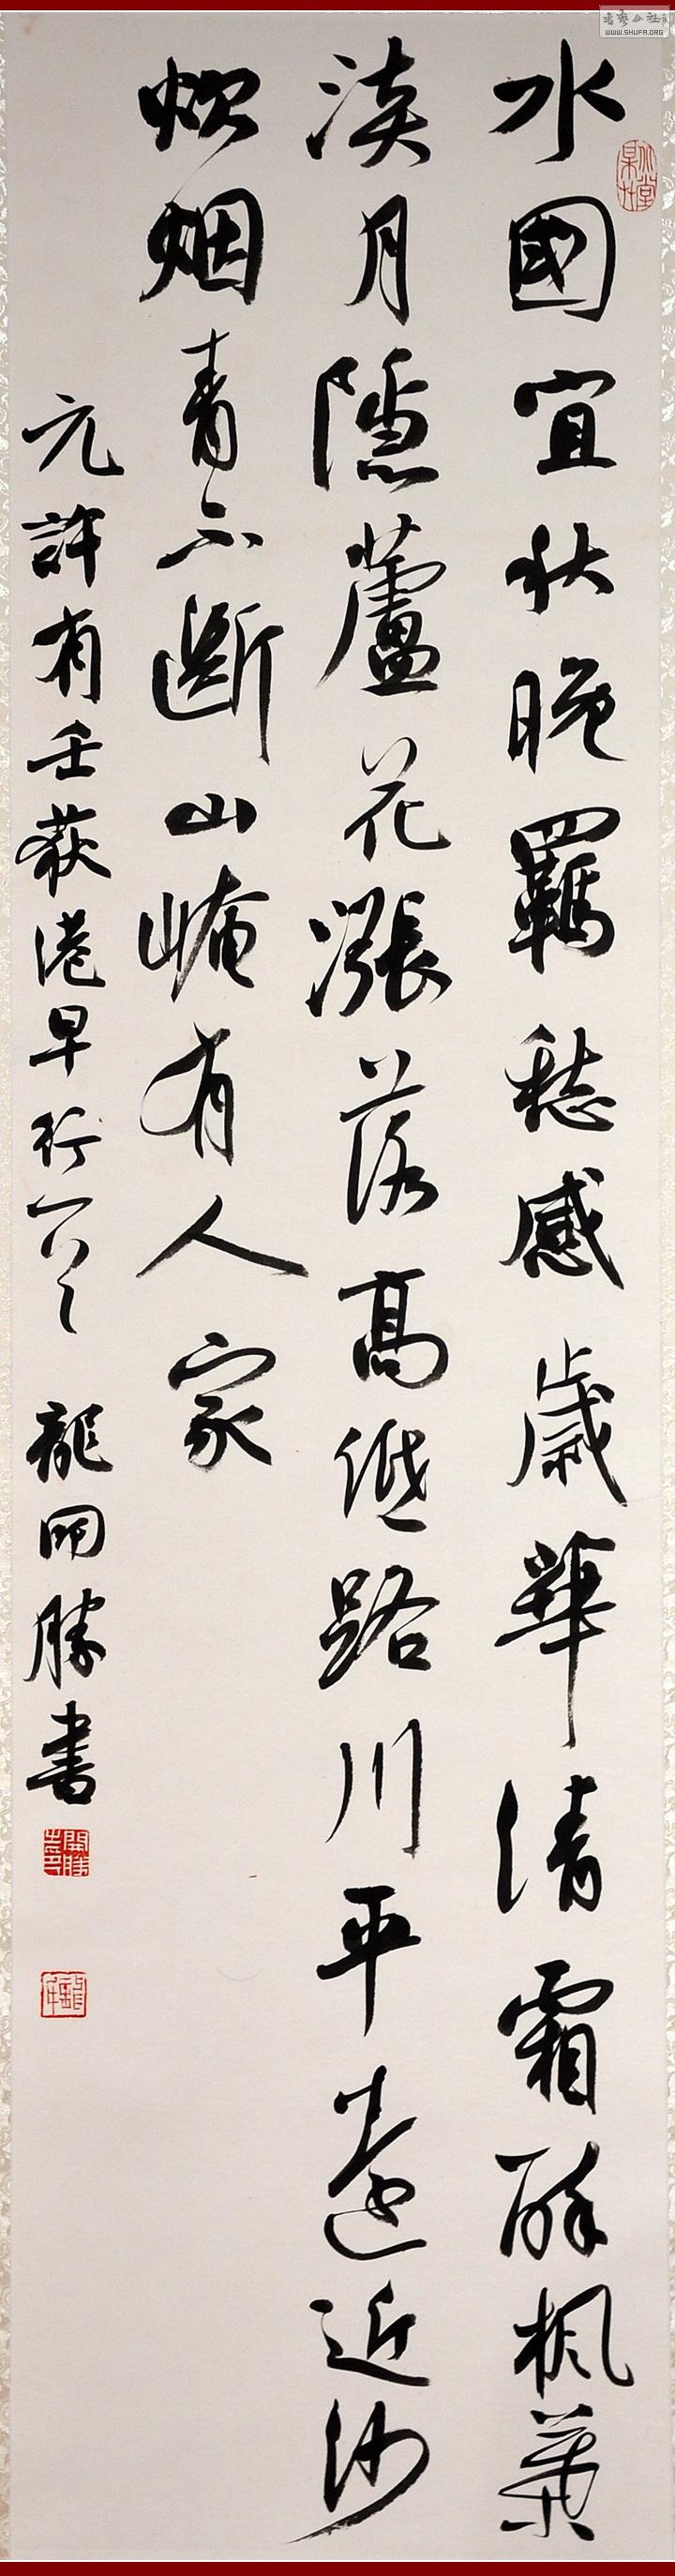 水國宜秋晚羈愁感歲華清霜醉楓葉
淡月隱蘆花漲落高低路川平遠近沙
炊烟青不斷山崦有人家
元許有壬荻港早行一首
龍開勝書
WWW.SHUFA.ORG